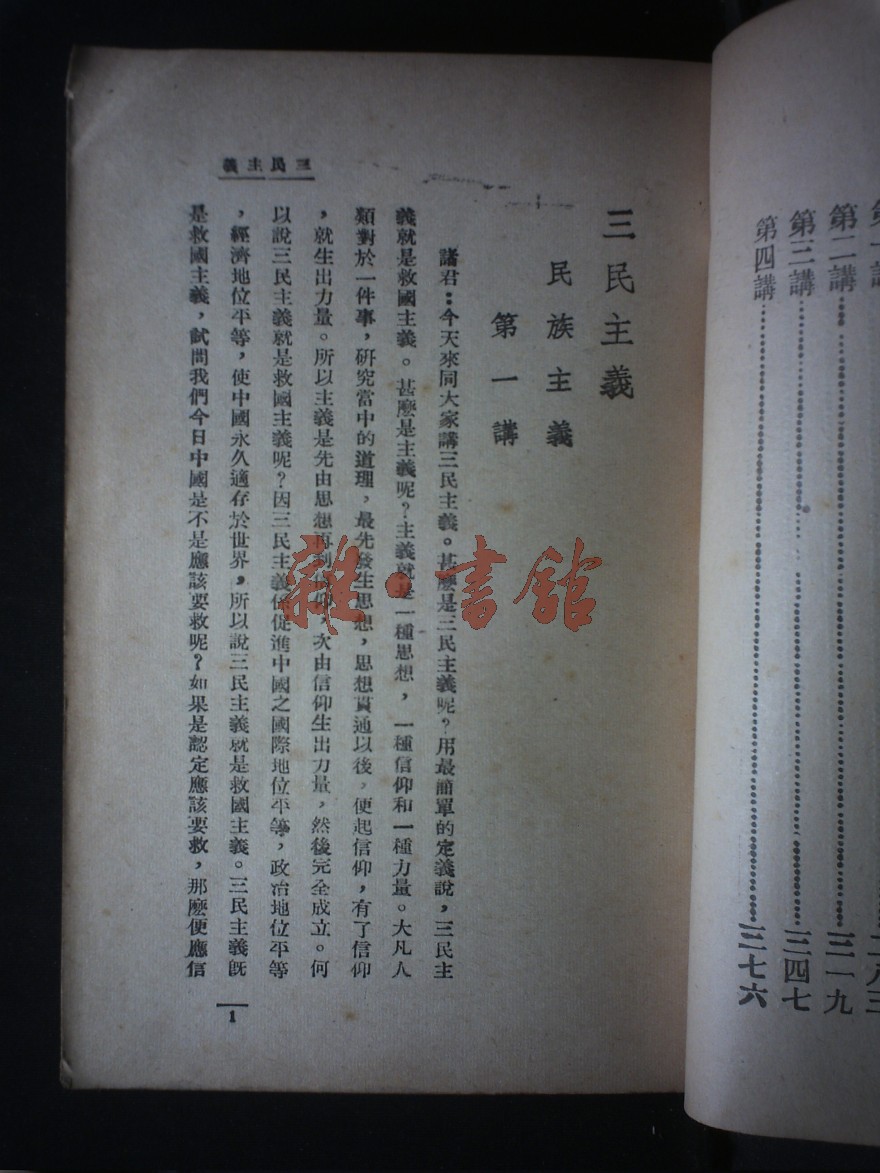 第一講
第二講
第三講
第四講
二八三
三一九
三四七
三七六
三民主義
三民主義
民族主義
第一講
諸君:今天來同大家講三民主義。甚麽是三民主義呢?用最簡單的定義說,三民主
義就是救國主義。甚麽是主義呢?主義就是一種思想,一種信仰和一種力量。大凡人
類對於一件事,研究當中的道理,最先發生思想,思想貫通以後,便起信仰,有了信仰
,就生出力量。所以主義是先由思想再到信仰,次由信仰生出力量,然後完全成立。何
以說三民主義就是救國主義呢?因三民主義係促進中國之國際地位平等,政治地位平等
,經濟地位平等,使中國永久適存於世界,所以說三民主義就是救國主義。三民主義旣
是救國主義,試問我們今日中國是不是應該要救呢?如果是認定應該要救,那麽便應信
1
雜·書館